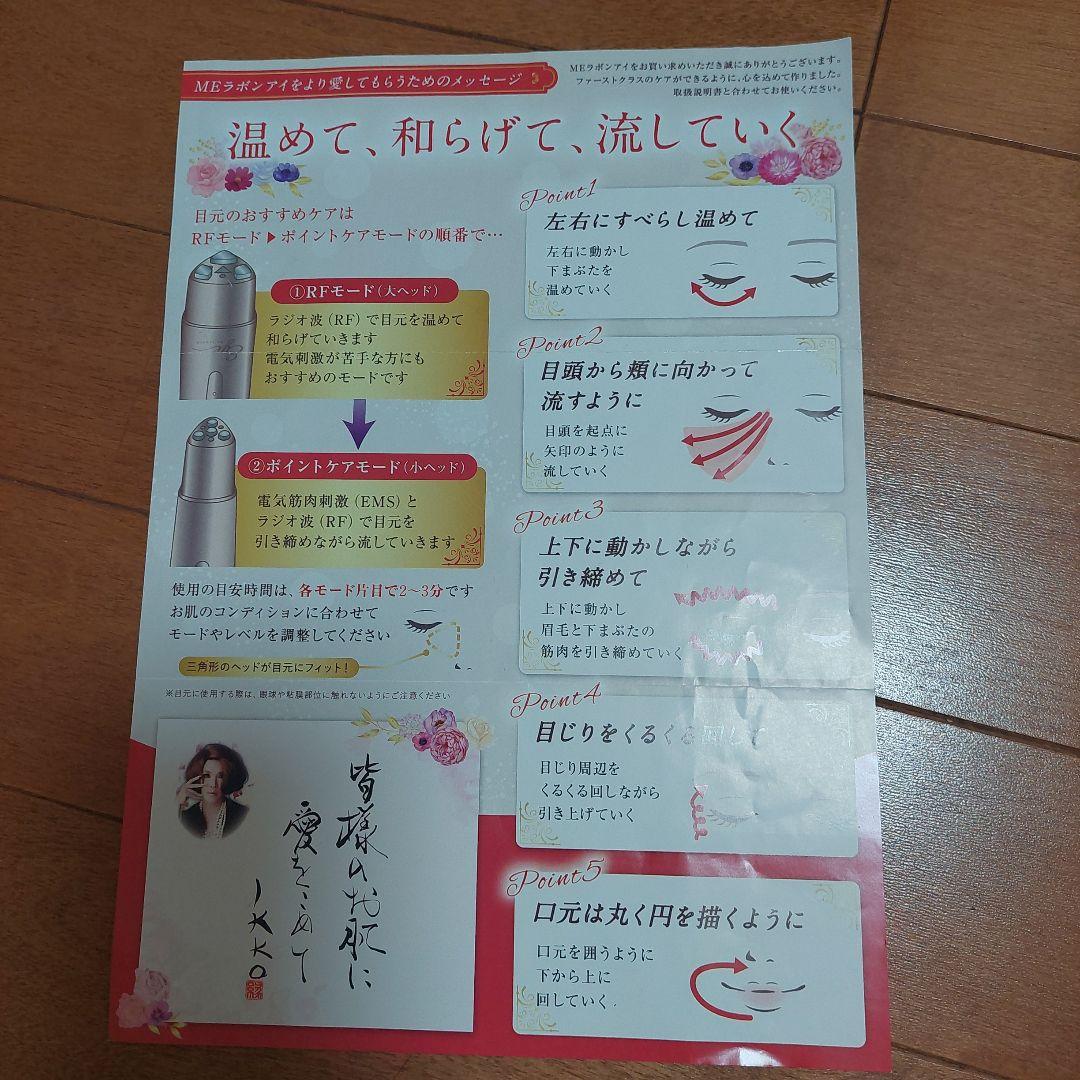 MEラボンアイをより愛してもらうためのメッセージ
MEラボンアイをお買い求めいただき誠にありがとうございます。
ファーストクラスのケアができるように、心を込めて作りました。
取扱説明書と合わせてお使いください。
温めて、和らげて、流していく
目元のおすすめケアは
RFモード▶ポイントケアモードの順番で…
①RFモード(大ヘッド)
ラジオ波(RF)で目元を温めて
和らげていきます
電気刺激が苦手な方にも
おすすめのモードです
②ポイントケアモード(小ヘッド)
電気筋肉刺激(EMS)と
ラジオ波(RF)で目元を
引き締めながら流していきます
使用の目安時間は、各モード片目で2〜3分です
お肌のコンディションに合わせて
モードやレベルを調整してください
三角形のヘッドが目元にフィット!
※目元に使用する際は、眼球や粘膜部位に触れないようにご注意ください
皆様のお肌に
愛をこめて
IKKO
Point1
左右にすべらし温めて
左右に動かし
下まぶたを
温めていく
Point2
目頭から頬に向かって
流すように
目頭を起点に
矢印のように
流していく
Point3
上下に動かしながら
引き締めて
上下に動かし
眉毛と下まぶたの
筋肉を引き締めていく
Point4
目じりをくるくる回して
目じり周辺を
くるくる回しながら
引き上げていく
Point5
口元は丸く円を描くように
口元を囲うように
下から上に
回していく